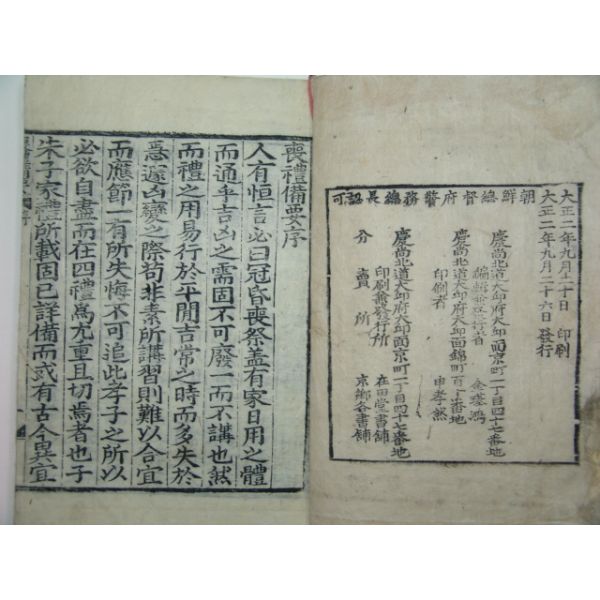 喪禮備要序
人有恒言必曰冠昏喪祭盖有家日用之體
而通乎吉凶之需固不可廢一而不講也然
而禮之用易行於平閒吉常之時而多失於
急遽凶變之際苟非素所講習則難以合宜
而應節一有所失悔不可追此孝子之所以
必欲自盡而在四禮爲尤重且切焉者也子
朱子家禮所載固已詳備而或有古今異宜
大正二年九月二十日 印刷
大正二年九月二十六日 發行
朝鮮總督府警務總長認可
慶尚北道大邱府大邱面京町一丁目四十七番地
編輯兼發行者 金璂鴻
慶尚北道大邱府大邱面錦町百 番地
印刷者 申孝然
慶尚北道大邱府大邱面京町一丁目四十七番地
印刷兼發行所 在田堂書鋪
分賣所 京鄉各書鋪